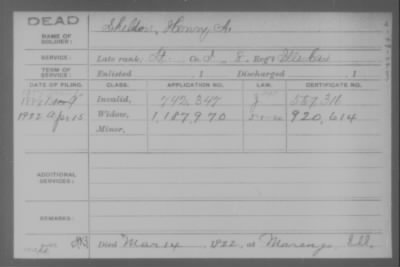 DEAD
NAME OF SOLDIER:
Sheldon, Henry A.
SERVICE:
Late rank, Lt Co. I, 8 Reg't Ills Cav
TERM OF SERVICE:
Enlisted , 1 Discharged , 1
DATE OF FILING. CLASS. APPLICATION NO. LAW. CERTIFICATE NO.
Invalid, 742,347
1922 Apr 15 Widow, 1,187,970 920,614
Minor,
ADDITIONAL SERVICES:
REMARKS:
Died Mar 14, 1922, at Marengo, Ill.